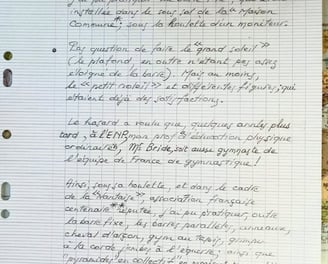 installée dans le sous sol de la "Maison
Commune"*, sous la houlette d'un moniteur.
Pas question de faire le "grand soleil"
(le plafond, en outre n'étant pas assez
éloigné de la barre). Mais au moins,
le "petit soleil" et différentes figures, qui
étaient déjà des satisfactions.
Le hasard a voulu que, quelques années plus
tard, à l'ENP, mon prof d'éducation physique
ordinaire, Mr Bride, soit aussi gymnaste de
l'équipe de France de gymnastique !
Ainsi, sous sa houlette, et dans le cadre
de la "Nantaise", association française
centenaire réputée, j'ai pu pratiquer, outre
la barre fixe, les barres parallèles, anneaux,
cheval d'arçon, gym au tapis, grimper
à la corde jambes à l'équerre; ainsi que
"pyramides en collectif"